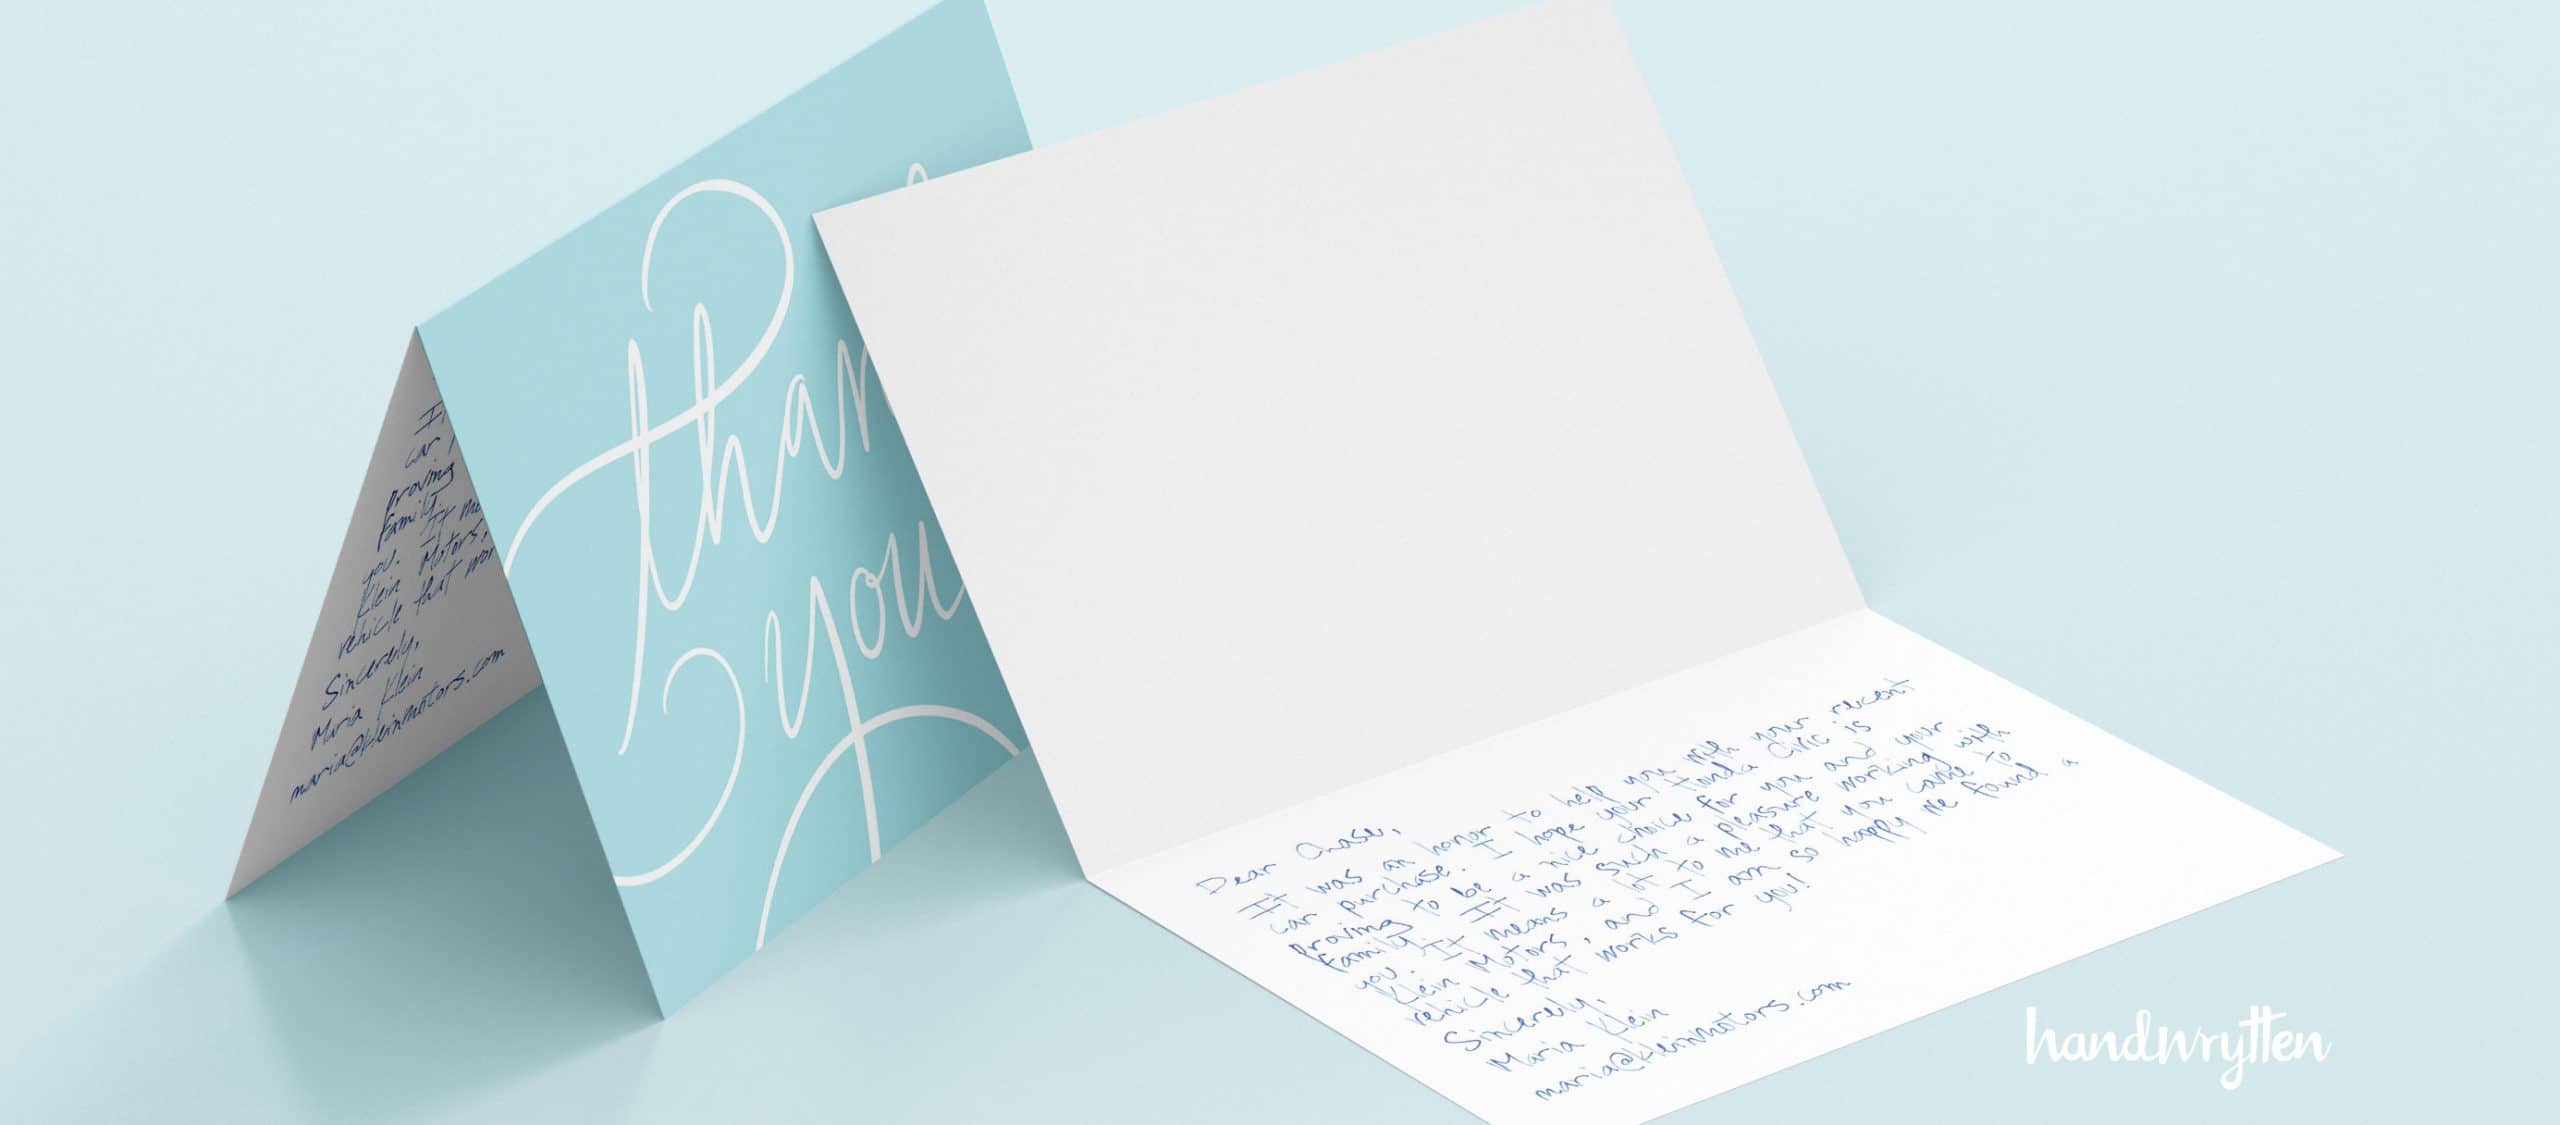 I
car
proving
Family.
you. It me
Klein Motors,
vehicle that wor
Sincerely,
Maria Klein
maria@kleinmotors.com
than
you
Dear Chase,
It was an honor to help you with your recent
car purchase. I hope your Honda Civic is
proving to be a nice choice for you and your
Family. It was such a pleasure working with
you. It means a lot to me that you came to
Klein Motors, and I am so happy we found a
vehicle that works for you!
Sincerely,
Maria Klein
maria@kleinmotors.com
handwrytten